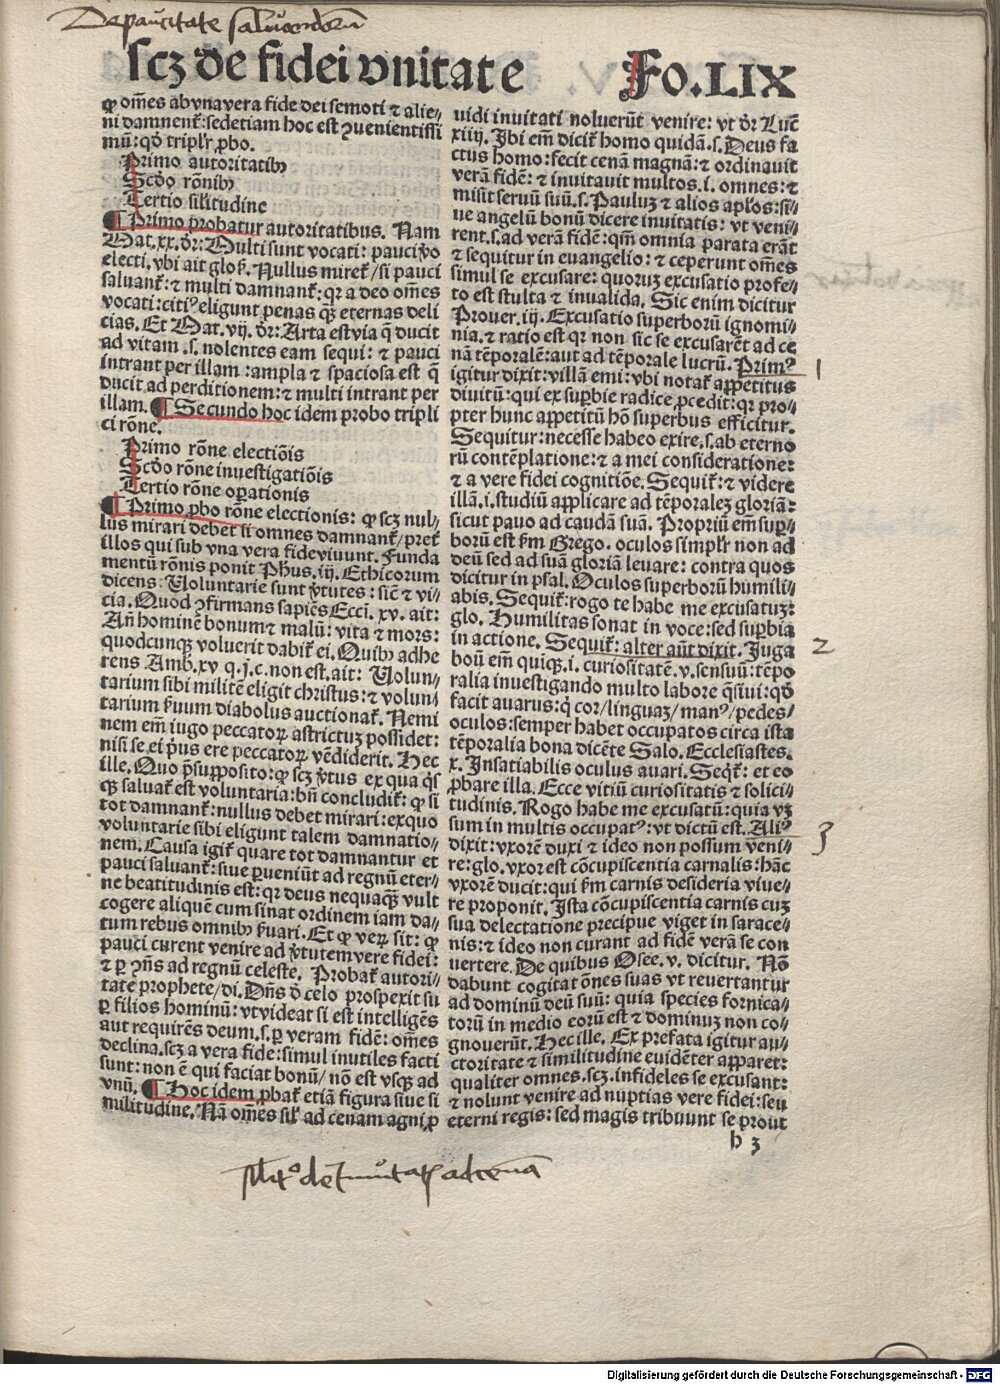 De paucitate saluandorū
scꝫ de fidei vnitate
Fo.LIX
ꝙ om̄es ab vna vera fide dei semoti ⁊ alie⸗
ni damnent᷑:sed etiam hoc est ꝯuenientissi
mū:qḋ triplr̄ ꝓbo.
Primo autoritatibꝰ
Scḋo rōnibꝰ
Tertio sil̄itudine
¶ Primo probatur autoritatibus. Nam
Mat.xx. dr̄: Multi sunt vocati: pauci v̄o
electi. vbi ait glos̄. Nullus miret᷑/si pauci
saluant᷑: ⁊ multi damnant᷑: qr a deo om̄es
vocati: citiꝰ eligunt penas qꝫ eternas deli
cias. Et Mat. vij. dr̄: Arta est via q̄ ducit
ad vitam .s. nolentes eam sequi: ⁊ pauci
intrant per illam :ampla ⁊ spaciosa est q̄
ducit ad perditionem: ⁊ multi intrant per
illam. ¶ Secundo hoc idem probo tripli
ci rōne.
Primo rōne electiōis
Scḋo rōne inuestigatiōis
Tertio rōne oꝑationis
¶ Primo ꝓbo rōne electionis: ꝙ scꝫ nul⸗
lus mirari debet si omnes damnant᷑/pret᷑
illos qui sub vna vera fide viuunt. Funda
mentū rōnis ponit Phus. iij. Ethicorum
dicens: Voluntarie sunt v̄tutes: sic̄ ⁊ vi⸗
cia. Quod ꝯfirmans sapiēs Ecci. xv. ait:
Añ hominē bonum ⁊ malū: vita ⁊ mors:
quodcunqꝫ voluerit dabit᷑ ei. Quibꝰ adhe
rens Amb. xv q. j. c. non est. ait: Volun⸗
tarium sibi militē eligit christus: ⁊ volun⸗
tarium s̄uum diabolus auctionat᷑. Nemi
nem em̄ iugo peccatoꝝ astrictuꝫ possidet:
nisi se ei p̄us ere peccatoꝝ vēdiderit. Hec
ille. Quo p̄supposito: ꝙ scꝫ v̄tus ex qua q̄s
qꝫ saluat᷑ est voluntaria: bn̄ concludit᷑: ꝙ si
tot damnant᷑: nullus debet mirari: ex quo
voluntarie sibi eligunt talem damnatio⸗
nem. Causa igit᷑ quare tot damnantur et
pauci saluant᷑: siue ꝑueniūt ad regnū eter⸗
ne beatitudinis est: qr deus nequaqꝫ vult
cogere aliquē cum sinat ordinem iam da⸗
tum rebus omnibꝰ s̄uari. Et ꝙ veꝝ sit: ꝙ
pauci curent venire ad v̄tutem vere fidei:
⁊ ꝑ ꝯn̄s ad regnū celeste. Probat᷑ autori⸗
tate prophete/di. Dn̄s ḋ celo prospexit su
ꝑ filios hominū: vt videat si est intelligēs
aut requirēs deum. s. ꝑ veram fidē: om̄es
declina. scꝫ a vera fide: simul inutiles facti
sunt: non ē qui faciat bonū/ nō est vsqꝫ ad
vnū. ¶ Hoc idem ꝓbat᷑ etiā figura siue si
militudine. Nā om̄es sil᷑ ad cenam agni ꝓ
uidi inuitati noluerūt venire: vt dr̄ Luc̄
xiiij. Ibi em̄ dicit᷑ homo quidā. s. Deus fa
ctus homo: fecit cenā magnā: ⁊ ordinauit
verā fidē: ⁊ inuitauit multos. i. omnes: ⁊
misit seruū suū. s. Pauluꝫ ⁊ alios apl̄os: si⸗
ue angelū bonū dicere inuitatis: vt veni⸗
rent. s. ad verā fidē: qm̄ omnia parata erāt
⁊ sequitur in euangelio: ⁊ ceperunt om̄es
simul se excusare: quoruꝫ excusatio profe⸗
to est stulta ⁊ inualida. Sic enim dicitur
Prouer. iij. Excusatio superborū ignomi⸗
nia. ⁊ ratio est qr non sic se excusarēt ad ce
nā tēporalē: aut ad tēporale lucrū. Primꝰ
igitur dixit: villā emi: vbi notat᷑ appetitus
diuitū: qui ex suꝑbie radice ꝓcedit: qr pro⸗
pter hunc appetitū hō superbus efficitur.
Sequitur: necesse habeo exire. s. ab eterno
rū contēplatione: ⁊ a mei consideratione:
⁊ a vere fidei cognitiōe. Sequit᷑: ⁊ videre
illā. i. studiū applicare ad tēporaleꝫ gloriā:
sicut pauo ad caudā suā. Propriū em̄ suꝑ⸗
borū est s̄m Grego. oculos simplr̄ non ad
deū sed ad suā gloriā leuare: contra quos
dicitur in psal. Oculos superborū humili⸗
abis. Sequit᷑: rogo te habe me excusatuꝫ:
glo. Humilitas sonat in voce: sed suꝑbia
in actione. Sequit᷑: alter aūt dixit. Juga
boū em̄ quiqꝫ. i. curiositatē. v. sensuū: tēpo
ralia inuestigando multo labore q̄siui: qḋ
facit auarus: q̄ cor/linguaꝫ/manꝰ/pedes⸗
oculos: semper habet occupatos circa ista
tēporalia bona dicēte Salo. Ecclesiastes.
x. Insatiabilis oculus auari. Seqt᷑: et eo
ꝓbare illa. Ecce vitiū curiositatis ⁊ solici⸗
tudinis. Rogo habe me excusatū: quia vꝫ
sum in multis occupatꝰ: vt dictū est. Aliꝰ
dixit: vxorē duxi ⁊ ideo non possum veni⸗
re: glo. vxor est cōcupiscentia carnalis: hāc
vxorē ducit: qui s̄m carnis desideria viue⸗
re proponit. Ista cōcupiscentia carnis cuꝫ
sua delectatione precipue viget in sarace⸗
nis: ⁊ ideo non curant ad fidē verā se con
uertere. De quibus Osee. v. dicitur. Nō
dabunt cogitatōnes suas vt reuertantur
ad dominū deū suū: quia species fornica⸗
torū in medio eorū est ⁊ dominuꝫ non co⸗
gnouerūt. Hec ille. Ex prefata igitur au⸗
ctoritate ⁊ similitudine euidēter apparet:
qualiter omnes. scꝫ. infideles se excusant:
⁊ nolunt venire ad nuptias vere fidei: seu
eterni regis: sed magis tribuunt se prout
1
2
3
h 3
ad cenā